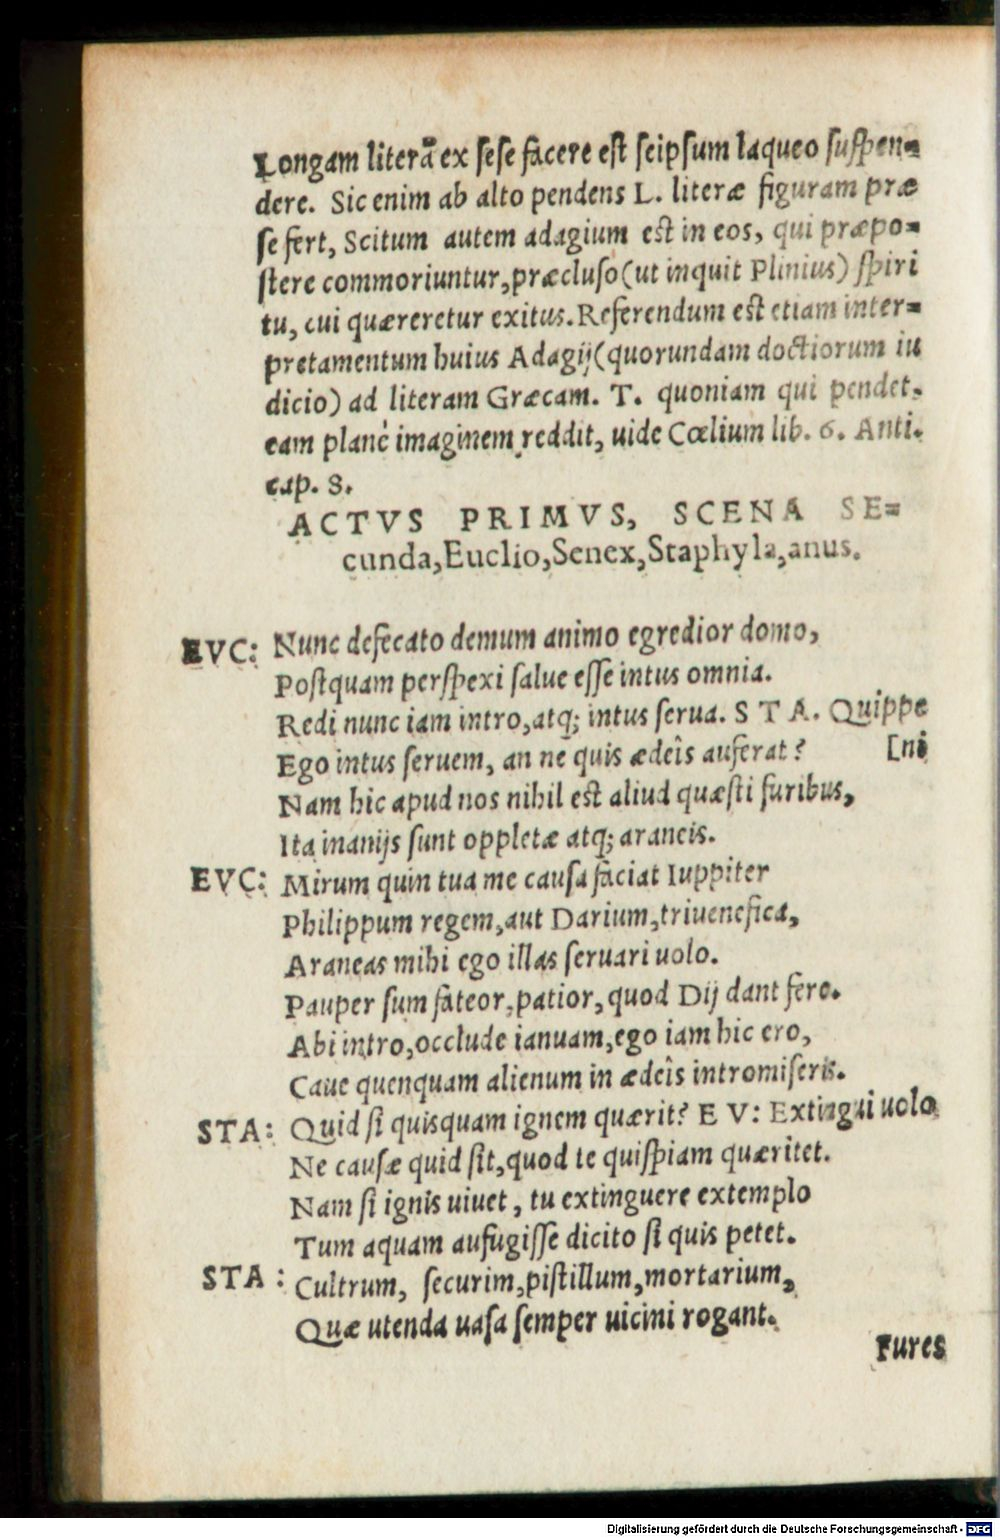 Longam literã ex ſeſe facere eſt ſeipſum laqueo ſuſpen=
dere. Sic enim ab alto pendens L. literæ figuram præ
ſe fert, Scitum autem adagium eſt in eos, qui præpo=
ſtere commoriuntur, præcluſo (ut inquit Plinius) ſpiri
tu, cui quæreretur exitus. Referendum eſt etiam inter=
pretamentum huius Adagij (quorundam doctiorum iu
dicio) ad literam Græcam. T. quoniam qui pendet,
eam planè imaginem reddit, uide Cœlium lib. 6. Anti.
cap. 8.
ACTVS PRIMVS, SCENA SE=
cunda, Euclio, Senex, Staphyla, anus.
EVC: Nunc defecato demum animo egredior domo,
Poſtquam perſpexi ſalue eſſe intus omnia.
Redi nunc iam intro, atq; intus ſerua. STA. Quippe
Ego intus ſeruem, an ne quis ædeîs auferat? [ni
Nam hic apud nos nihil eſt aliud quæſti furibus,
Ita inanijs ſunt oppletæ atq; araneis.
EVC: Mirum quin tua me cauſa faciat Iuppiter
Philippum regem, aut Darium, triuenefica,
Araneas mihi ego illas ſeruari uolo.
Pauper ſum fateor, patior, quod Dij dant fero.
Abi intro, occlude ianuam, ego iam hic ero,
Caue quenquam alienum in ædeîs intromiſeris.
STA: Quid ſi quisquam ignem quærit? EV: Extingui uolo
Ne cauſæ quid ſit, quod te quiſpiam quæritet.
Nam ſi ignis uiuet, tu extinguere extemplo
Tum aquam aufugiſſe dicito ſi quis petet.
STA: Cultrum, ſecurim, piſtillum, mortarium,
Quæ utenda uaſa ſemper uicini rogant.
Fures
Digitalisierung gefördert durch die Deutsche Forschungsgemeinschaft - DFG